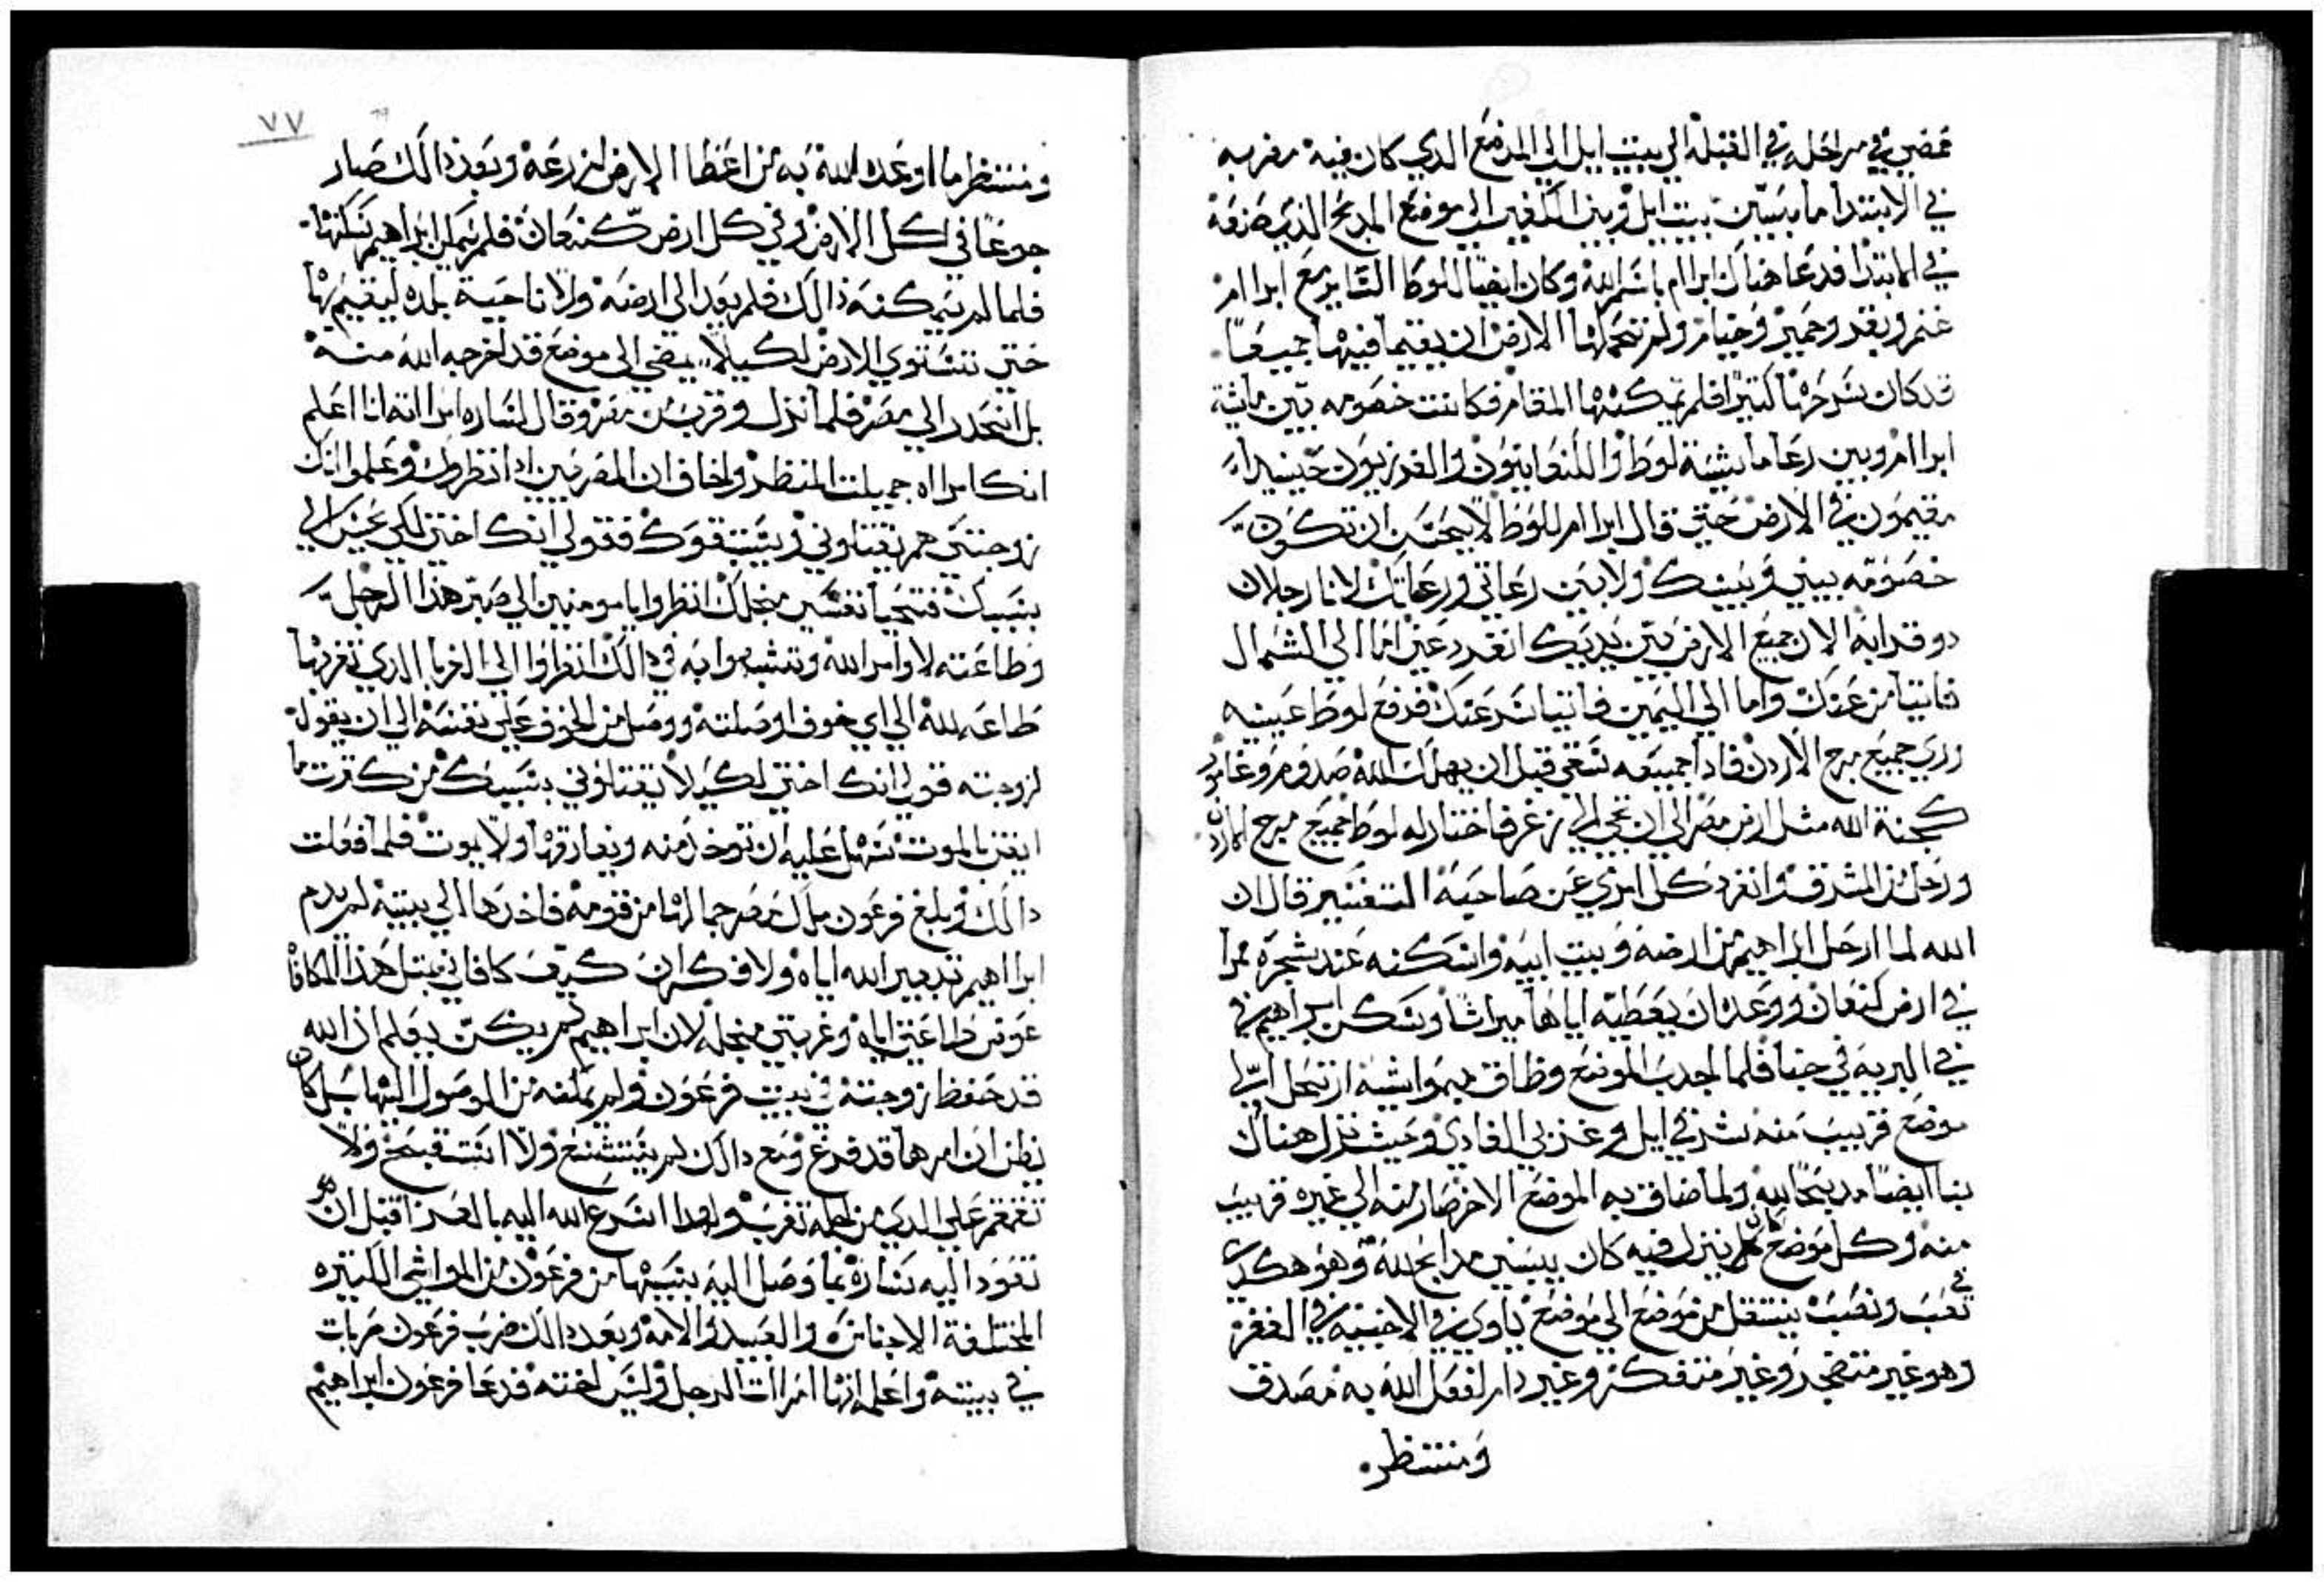 فمضي في مراحله في القبلة الي بيت ايل الي الموضع الدي كان فيه مضربه
في الابتدا ما بين بيت ايل وبين الي موضع المدبح الذي صنعه
في الابتدا فدعا هناك ابرام باسم الله وكان ايضا للوط الساير مع ابراام
غنم وبقر وحمير وخيام ولم تحملهما الارض ان يقيما فيها جميعا
قد كان سرحهما كثيرا فلم تمكنهما المقام فكانت خصومه بين ماشية
ابراام وبين رعا ماشية لوط والكنعانيون والفرزيون حينيدا
مقيمون في الارض حتي قال ابراام للوط لا يجب ان تكون
خصومه بيني وبينك ولا بين رعاتي ورعاتك لاننا رجلان
دو قرابه الان جميع الارض بين يديك انفرد عني اما الي الشمال
فاتيامن عنك واما الي اليمين فاتياسر عنك فرفع لوط عينيه
وراي جميع مرج الاردن فادا جميعه تسقي قبل ان يهلك الله صدوم وغامور
كجنة الله مثل ارض مصر الي ان تجي الي زغر فاختار له لوط جميع مرج الاردن
ورحل من المشرق وانفرد كل امري عن صاحبه التفسير قال ان
الله لما ارحل ابراهيم من ارضه وبيت ابيه واسكنه عند شجرة ممرا
في ارض كنعان ووعده ان يعطيه اياها ميراثا وسكن ابراهيم في
في البريه في خبا فلما اجدب الموضع وضاق بمواشيه ارتحل الي
موضع قريب منه شرقي ايل وغربي الغاي وحيث نزل هناك
بنا ايضا مدبحا لله ولما ضاق به الموضع الاخر صار منه الي غيره قريب
منه وكل موضع كان ينزل فيه كان يبني مدابح لله وهو هكدي
في تعب ونصب ينتقل من موضع الي موضع ياوي في الاخبيه في القفر
وهو غير متضجر وغير متفكر وغير دام لفعل الله به مصدق
ومنتظر
٧٧
ومنتظر ما اوعده الله به من اعطا الارض لزرعه وبعد دالك صار
جوعا في كل الارض وفي كل ارض كنعان فلم يمكن ابراهيم سكنها
فلما لم يمكنه ذالك فلم يعد الي ارضه ولا ناحية بلده ليقيم بها
حتي تستوي الارض لكيلا يمضي الي موضع قد اخرجه الله منه
بل انحدر الي مصر فلما نزل وقرب من مصر وقال لساره امراته انا اعلم
انك امراه جميلت المنظر واخاف ان المصريين ادا نظروك وعلموا انك
زوجتي هم يقتلوني ويستبقوك فقولي انك اختي لكي يحسن الي
بسببك فتحيا نفسي من اجلك انظروا يا مومنين الي صبر هذا الرجل
وطاعته لاوامر الله وتشبهوا به في دالك انظروا الي الذي تغربها
طاعه لله الي اي خوف اوصلته ووصل من الخوف علي نفسه الي ان يقول
لزوجته قولي انك اختي لكيلا يقتلوني بسببك من كترت ما
ايقن بالموت سهل عليه ان توخد منه ويفارقها ولا يموت فلما فعلت
دالك وبلغ فرعون ملك مصر جمالها من قومه فاخدها الي بيته لم يدم
ابراهيم تدبير الله اياه ولا فكر ان كيف كافاني بمثل هذا المكافا
عوض طاعتي اياه وغربتي من اجله لان ابراهيم لم يكن يعلم ان الله
قد حفظ زوجته في بيت فرعون ولم يمكنه من الوصول اليها بل كان
يظن ان امرها قد فرغ ومع دالك لم يتشنع ولا استقبح ولا
تقمقم علي الدي من اجله تغرب ولهدا اسرع الله اليه بالعزا قبل ان
تعود اليه ساره بما وصل اليه بسببها من فرعون من المواشي الكتيره
المختلفة الاجناس والعبيد والامه وبعد دالك ضرب فرعون ضربات
في بيته واعلم انها امرات الرجل وليس اخته فدعا فرعون ابراهيم